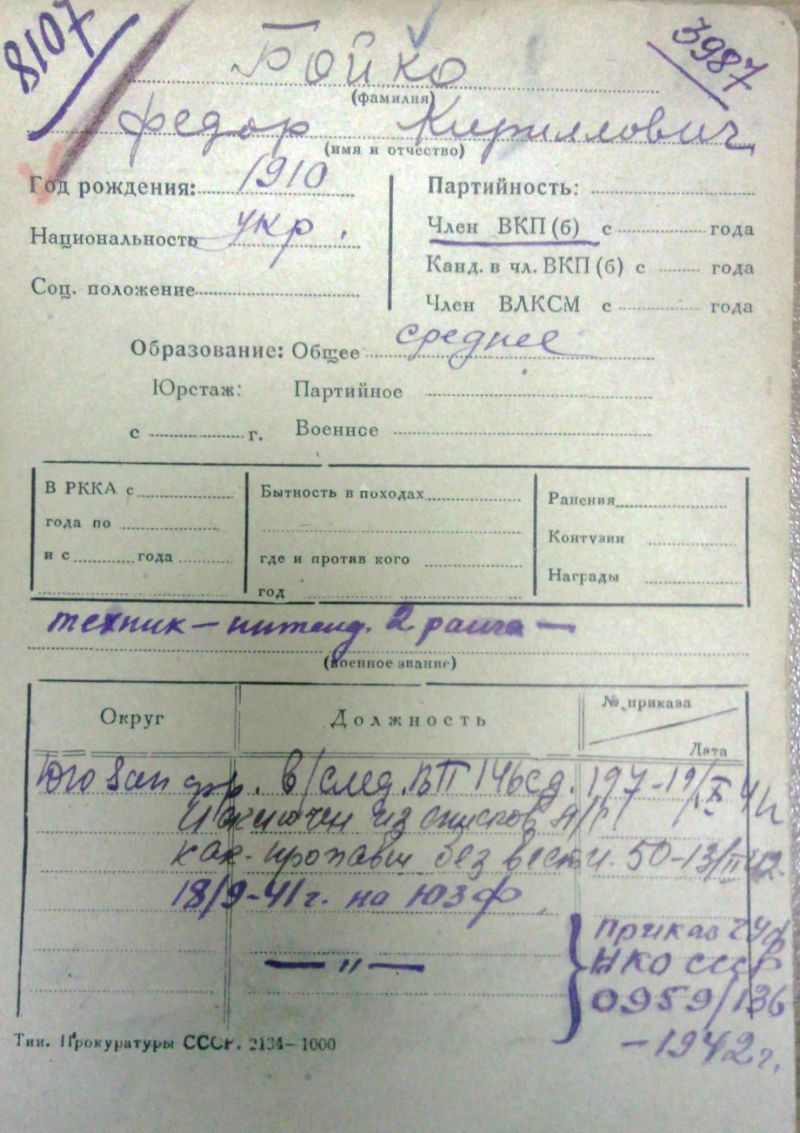 8107
3987
Бойко
(фамилия)
Федор Кириллович
(имя и отчество)
Год рождения: 1910
Национальность укр.
Соц. положение
Партийность:
Член ВКП(б) с года
Канд. в чл. ВКП(б) с года
Член ВЛКСМ с года
Образование: Общее среднее
Юрстаж: Партийное
с г. Военное
В РККА с
года по
и с года
Бытность в походах
где и против кого
год
Ранения
Контузии
Награды
техник – интенд. 2 ранга –
(военное звание)
Округ
Должность
№ приказа
Дата
Юго Зап фр. в/след. ВП 146 сд. 197-19/
Исключен из списков
как пропавш без вести. 50-13/II 42.
18/9-41г. на ЮЗФ
— " —
Приказ
НКО СССР
0959/136
-1942г.
Тип. Прокуратуры СССР. 2134–1000